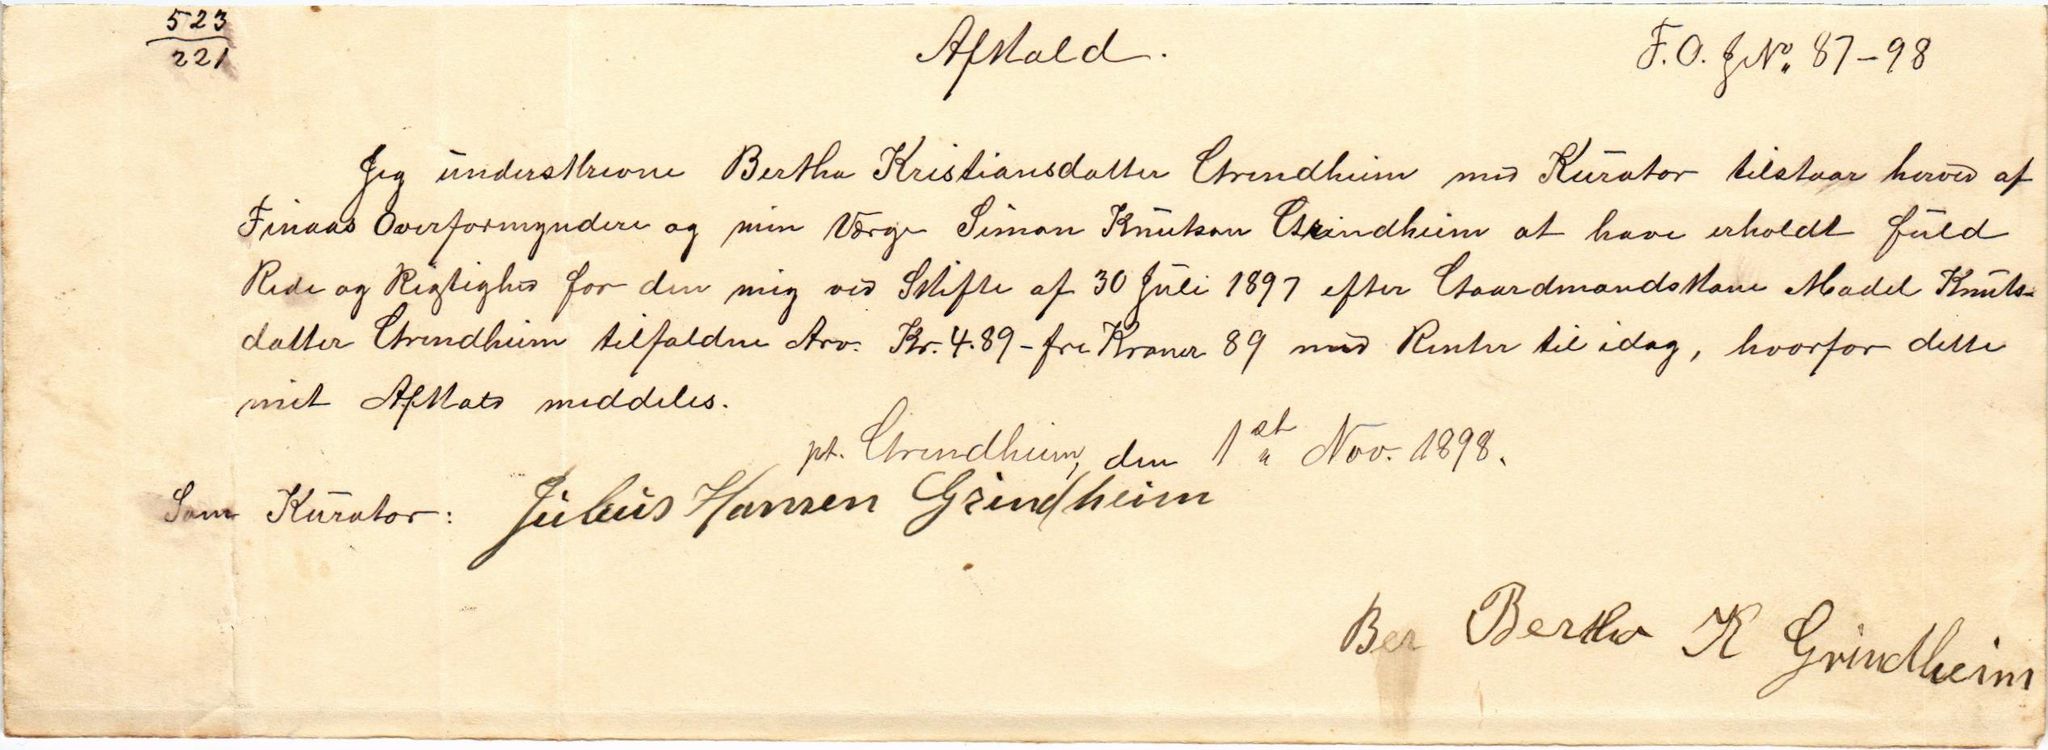 523
221
Afkald.
F. O. J No. 87-98
Jeg underskrevne Bertha Kristiansdatter Grindheim med Kurator tilstaar herved af
Finaas Overformynderi og min Værge Simon Knutson Grindheim at have erholdt fuld
Rede og Rigtighed for den mig ved Skifte af 30 Juli 1897 efter Gaardmandskone Madel Knuts-
datter Grindheim tilfaldne Arv. Kr. 4.89 - fire Kroner 89 med Renter til idag, hvorfor dette
mit Afkald meddeles.
pt. Grindheim, den 1st Nov. 1898.
Som Kurator: Julius Hansen Grindheim
Ber Bertha K Grindheim